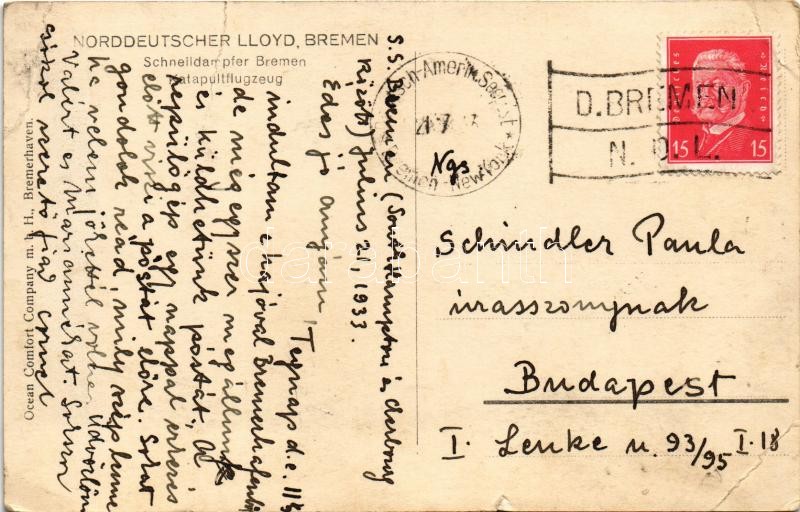 NORDDEUTSCHER LLOYD, BREMEN
Schnelldampfer Bremen
Katapultflugzeug
Ocean Comfort Company m. b. H., Bremerhaven.
S.S. Bremen (Southampton és Cherbourg
között) Julius 21, 1933.
Edes jó anyám,
Tegnap d.e. 11
indultam e hajóval Bremerhafenből
de meg egyszer megállunk
és küldhetünk postát. A
repülőgép egy nappal
előtt viszi a postát előre. Sokat
gondolok read, mily szép lenne
ha velem jöhettél volna. Üdvözlöm
Valért és Mariannékat. Sokszor
csókol szerető fiad Ernő
Bremen - New York
21 7
Ngs
D. BREMEN
N. D. L.
Deutsches Reich
15 15
Schindler Paula
urasszonynak
Budapest
I. Lenke u. 93/95 I. 18
darabanth